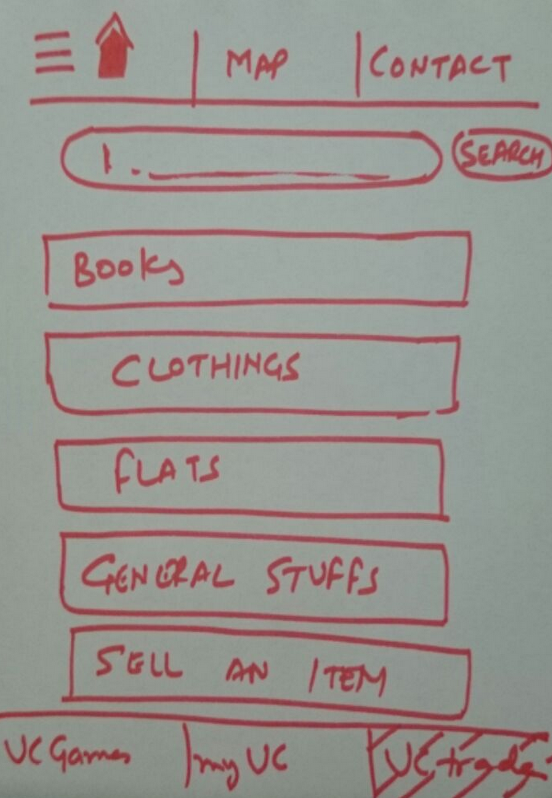 MAP CONTACT
SEARCH
Books
CLOTHINGS
FLATS
GENERAL STUFFS
SELL AN ITEM
UC Games my UC UC trade